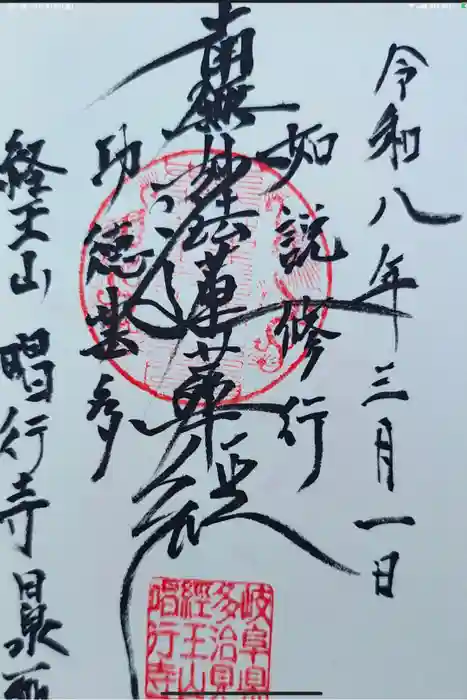 令和八年三月一日
如説修行
南無妙法蓮華経
功徳甚多
経王山 唱行寺
岐阜県
多治見
經王山
唱行寺